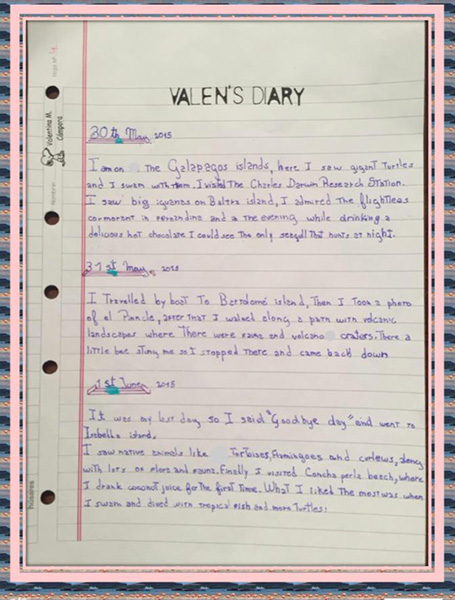 VALEN'S DIARY
Valentina M.
Cámpora
30th May 2015
I am on The Galápagos islands, here I saw gigant Turtles
and I swam with them. I visited The Charles Darwin Research Station.
I saw big iguanas on Baltra island, I admired the flightless
cormorant in Fernandina and in the evening while drinking a
delicious hot chocolate I could see the only seagull that hunts at night.
31st May, 2015
I Travelled by boat To Bartolomé island, Then I Took a photo
of el Pináculo, after that I walked along a path with volcanic
landscapes where There were fauna and volcano craters. There a
little bee stung me so I stopped There and came back down
1st June 2015
It was my last day so I said "Goodbye day" and went to
Isabella island.
I saw native animals like Tortoises, Flamingoes and curlews, along
with lots on flora and fauna. Finally I visited Concha perla beach, where
I drank coconut juice for the first Time. What I liked The most was when
I swam and dived with tropical fish and more Turtles!